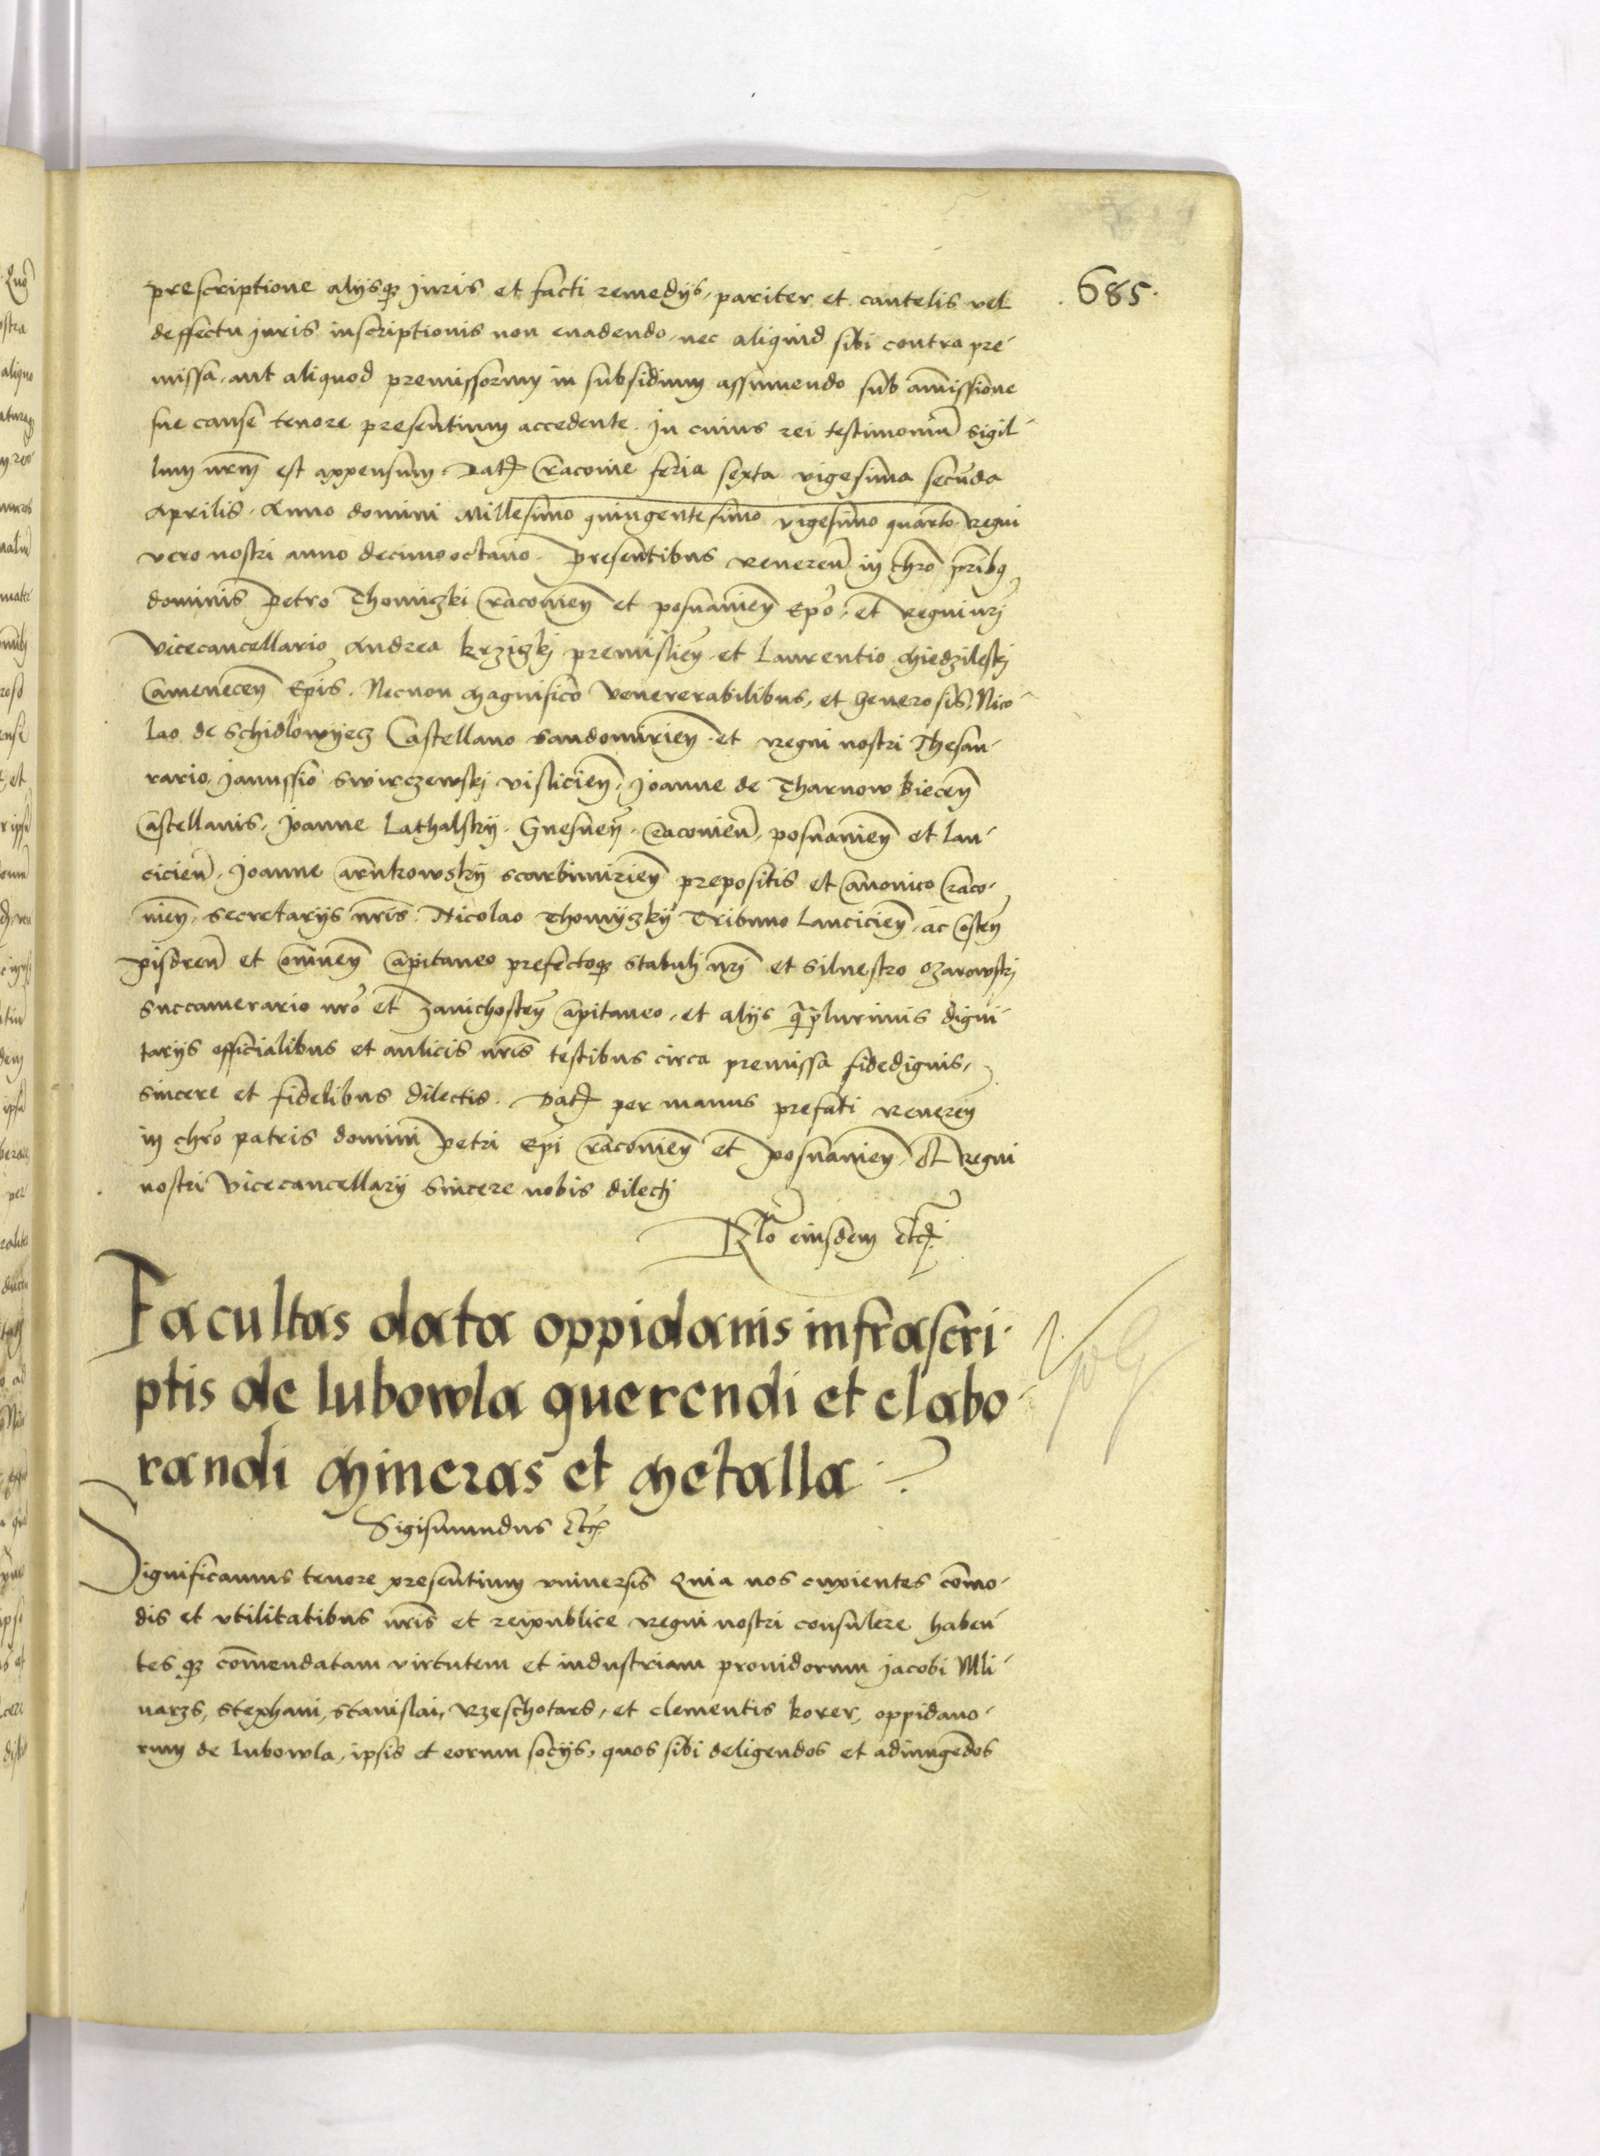 685.
prescriptione alijsq juris et facti remedijs, pariter et cautelis vel
deffectu juris inscriptionis non euadendo, nec aliquid sibi contra pre-
missa, aut aliquod premissorum in subsidium assumendo sub amissione
sue cause tenore presentium accedente. In cuius rei testimoniū sigil-
lum nrm̄ est appensum. Dat Cracouie feria sexta vigesima secūda
Aprilis. Anno domini Millesimo quingentesimo vigesimo quarto. Regni
vero nostri anno decimooctauo. Presentibus Reuereñ in chro p̄ribus
dominis Petro Thomiczki Cracouieñ et posnanieñ Epo. et Regni nrj
Vicecancellario, Andrea Krziczkj premislieñ. et Laurentio Miedzileskj
Cameneceñ Epis. Necnon Magnifico Venererabilibus, et generosis, Nico-
lao de Schidlowyecz Castellano Sandomirieñ. et Regni nostri Thesau-
rario, Janussio Swirczewskj visliciēñ, Joanne de Tharnow Bieceñ
Castellanis, Joanne Lathalskij. Gnesneñ. Cracouieñ, posnanieñ et lan-
cicieñ. Joanne Carnkowskij Scarbimirieñ prepositis et Canonico Craco-
uieñ. Secretarijs nris. Nicolao Thomijczkij Tribuno Lancicieñ. ac Costeñ
pisdreñ et Conineñ Capitaneo prefectoq Stabulj nrj et Siluestro Ozarowskj
Succamerario nro et Zauichosteñ Capitaneo, et alijs q̄plurimis digni-
tarijs officialibus et aulicis nris testibus circa premissa fidedignis,
sincere et fidelibus dilectis. Dat per manus prefati Reuereñ
in chro patris domini Petri Epi Cracouieñ et posnanieñ, et Regni
nostri Vicecancellarij sincere nobis dilectj
Rlo eiusdem etc
Facultas data oppidanis infrascri-
ptis de lubowla querendi et elabo-
randi Mineras et Metalla.
Sigismundus etc
Significamus tenore presentium vniuersis Quia nos cupientes como-
dis et vtilitatibus nris et reipublice Regni nostri consulere haben-
tes q comendatam virtutem et industriam prouidorum Jacobi Mli-
narzs, Stephani, Stanislai, Rzeschotars, et Clementis korer, oppidano-
rum de Lubowla, ipsis et eorum socijs, quos sibi deligendos et adiungēdos